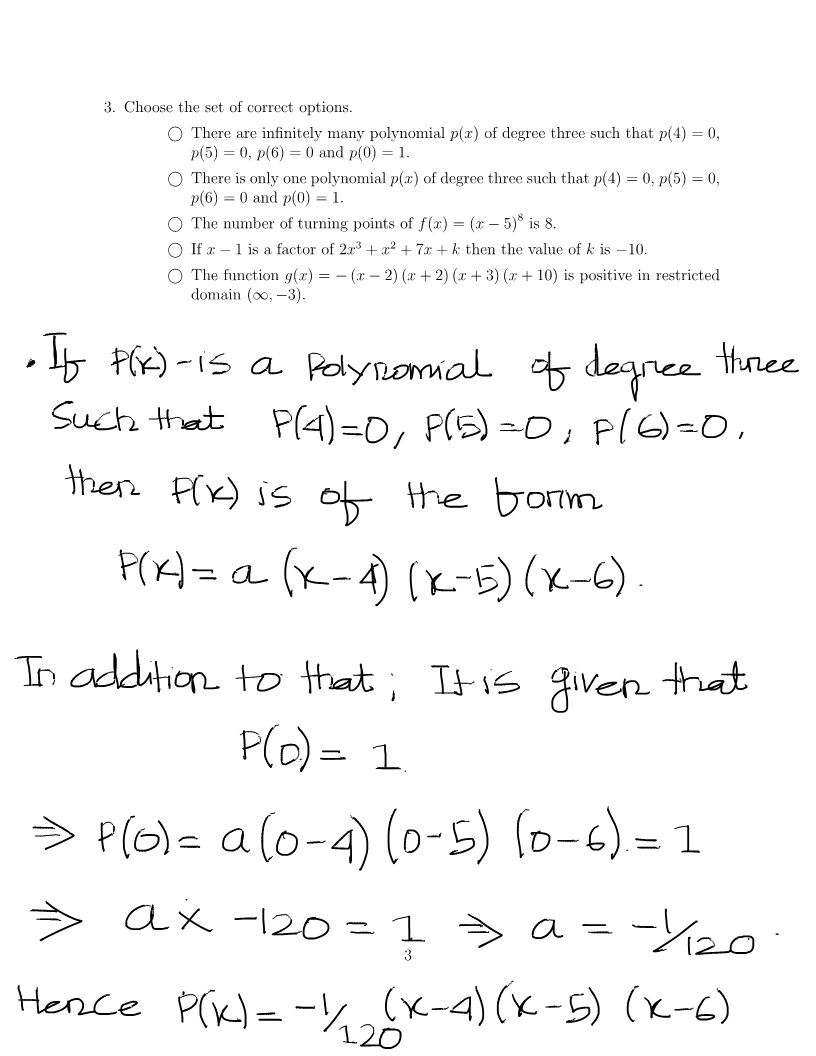 3. Choose the set of correct options.
○ There are infinitely many polynomial p(x) of degree three such that p(4) = 0,
p(5) = 0, p(6) = 0 and p(0) = 1.
○ There is only one polynomial p(x) of degree three such that p(4) = 0, p(5) = 0,
p(6) = 0 and p(0) = 1.
○ The number of turning points of f(x) = (x − 5)⁸ is 8.
○ If x − 1 is a factor of 2x³ + x² + 7x + k then the value of k is −10.
○ The function g(x) = − (x − 2) (x + 2) (x + 3) (x + 10) is positive in restricted
domain (∞, −3).
. If P(x) - is a Polynomial of degree three
Such that P(4)=0, P(5)=0, P(6)=0,
then P(x) is of the form
P(x) = a (x-4) (x-5) (x-6).
In addition to that, It is given that
P(0) = 1.
⇒ P(0) = a(0-4) (0-5) (0-6). = 1
⇒ a x -120 = 1 ⇒ a = -1/120.
3
Hence P(x) = -1/120 (x-4) (x-5) (x-6)